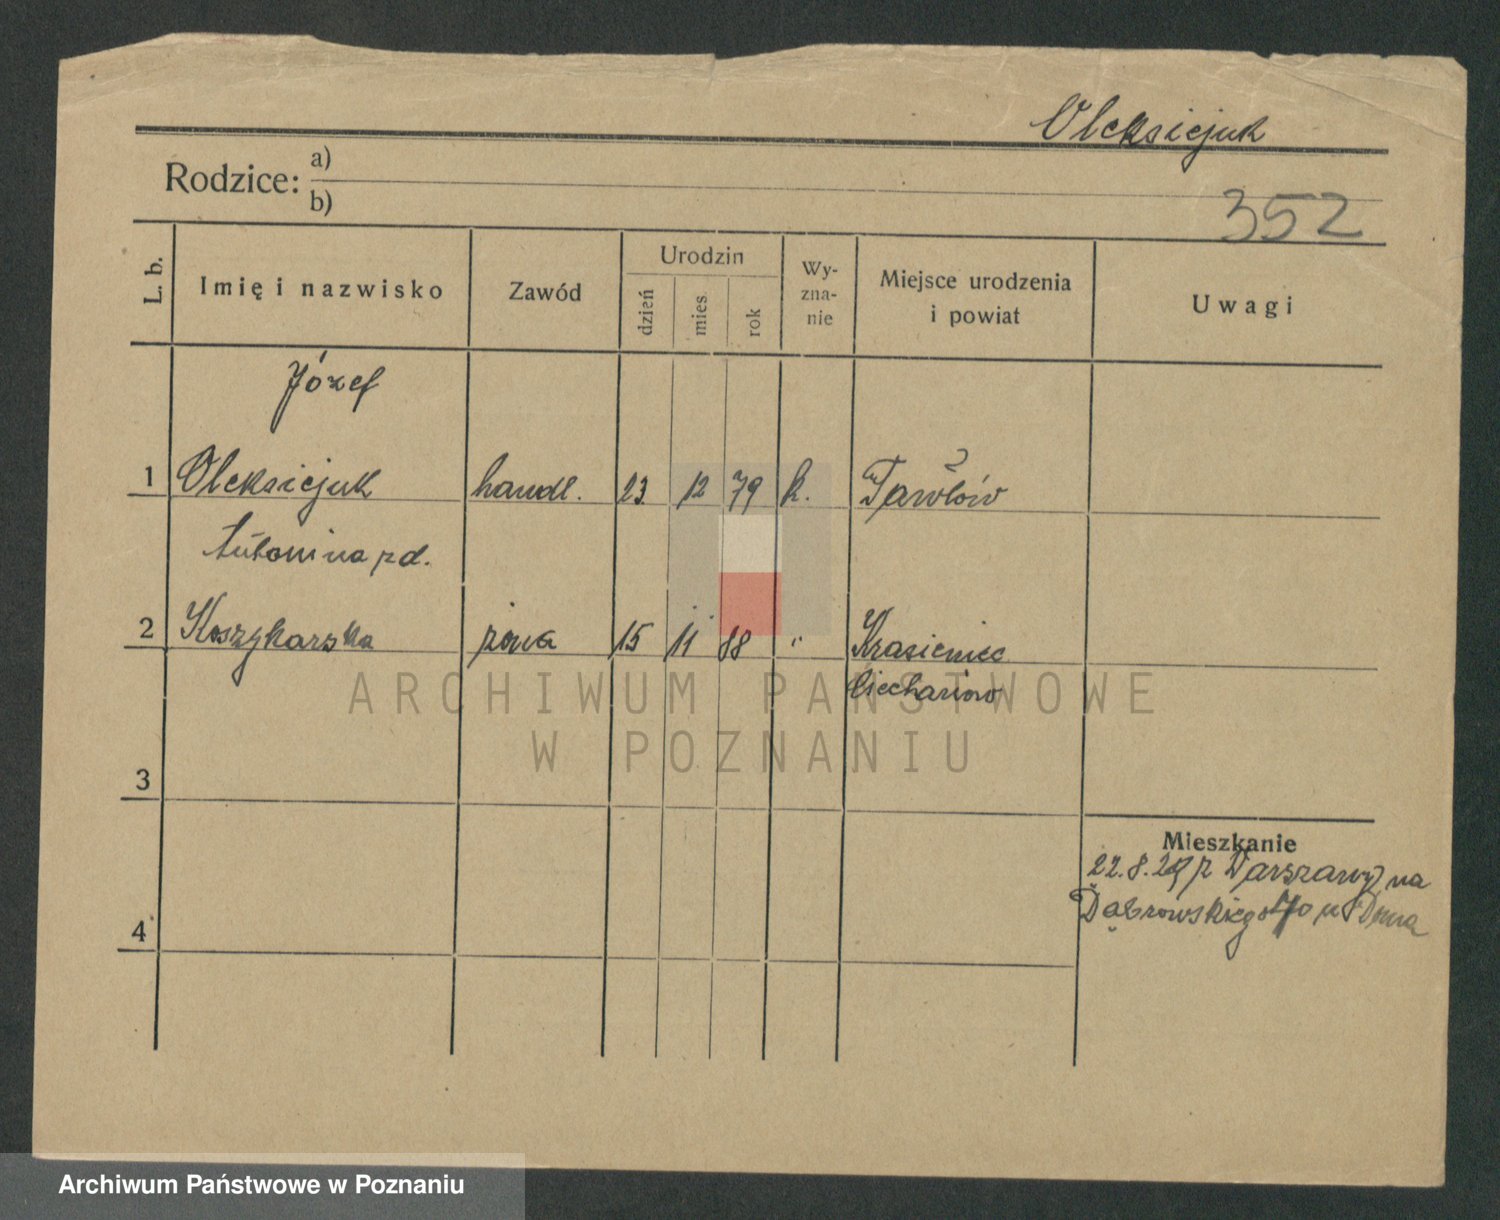 Oleksiejuk
Rodzice: a)
b)
352
L. b.
Imię i nazwisko
Zawód
Urodzin
dzień
mies.
rok
Wy-
zna-
nie
Miejsce urodzenia
i powiat
Uwagi
Józef
1 Oleksiejuk handl. 23 12 79 k.
Antonina zd.
2 Koszykarska żona 15 11 88 " Krasieniec
Ciechanow
ARCHIWUM PAŃSTWOWE
W POZNANIU
3
Mieszkanie
22.8.29 z Warszawy na
Dąbrowskiego
4
Archiwum Państwowe w Poznaniu